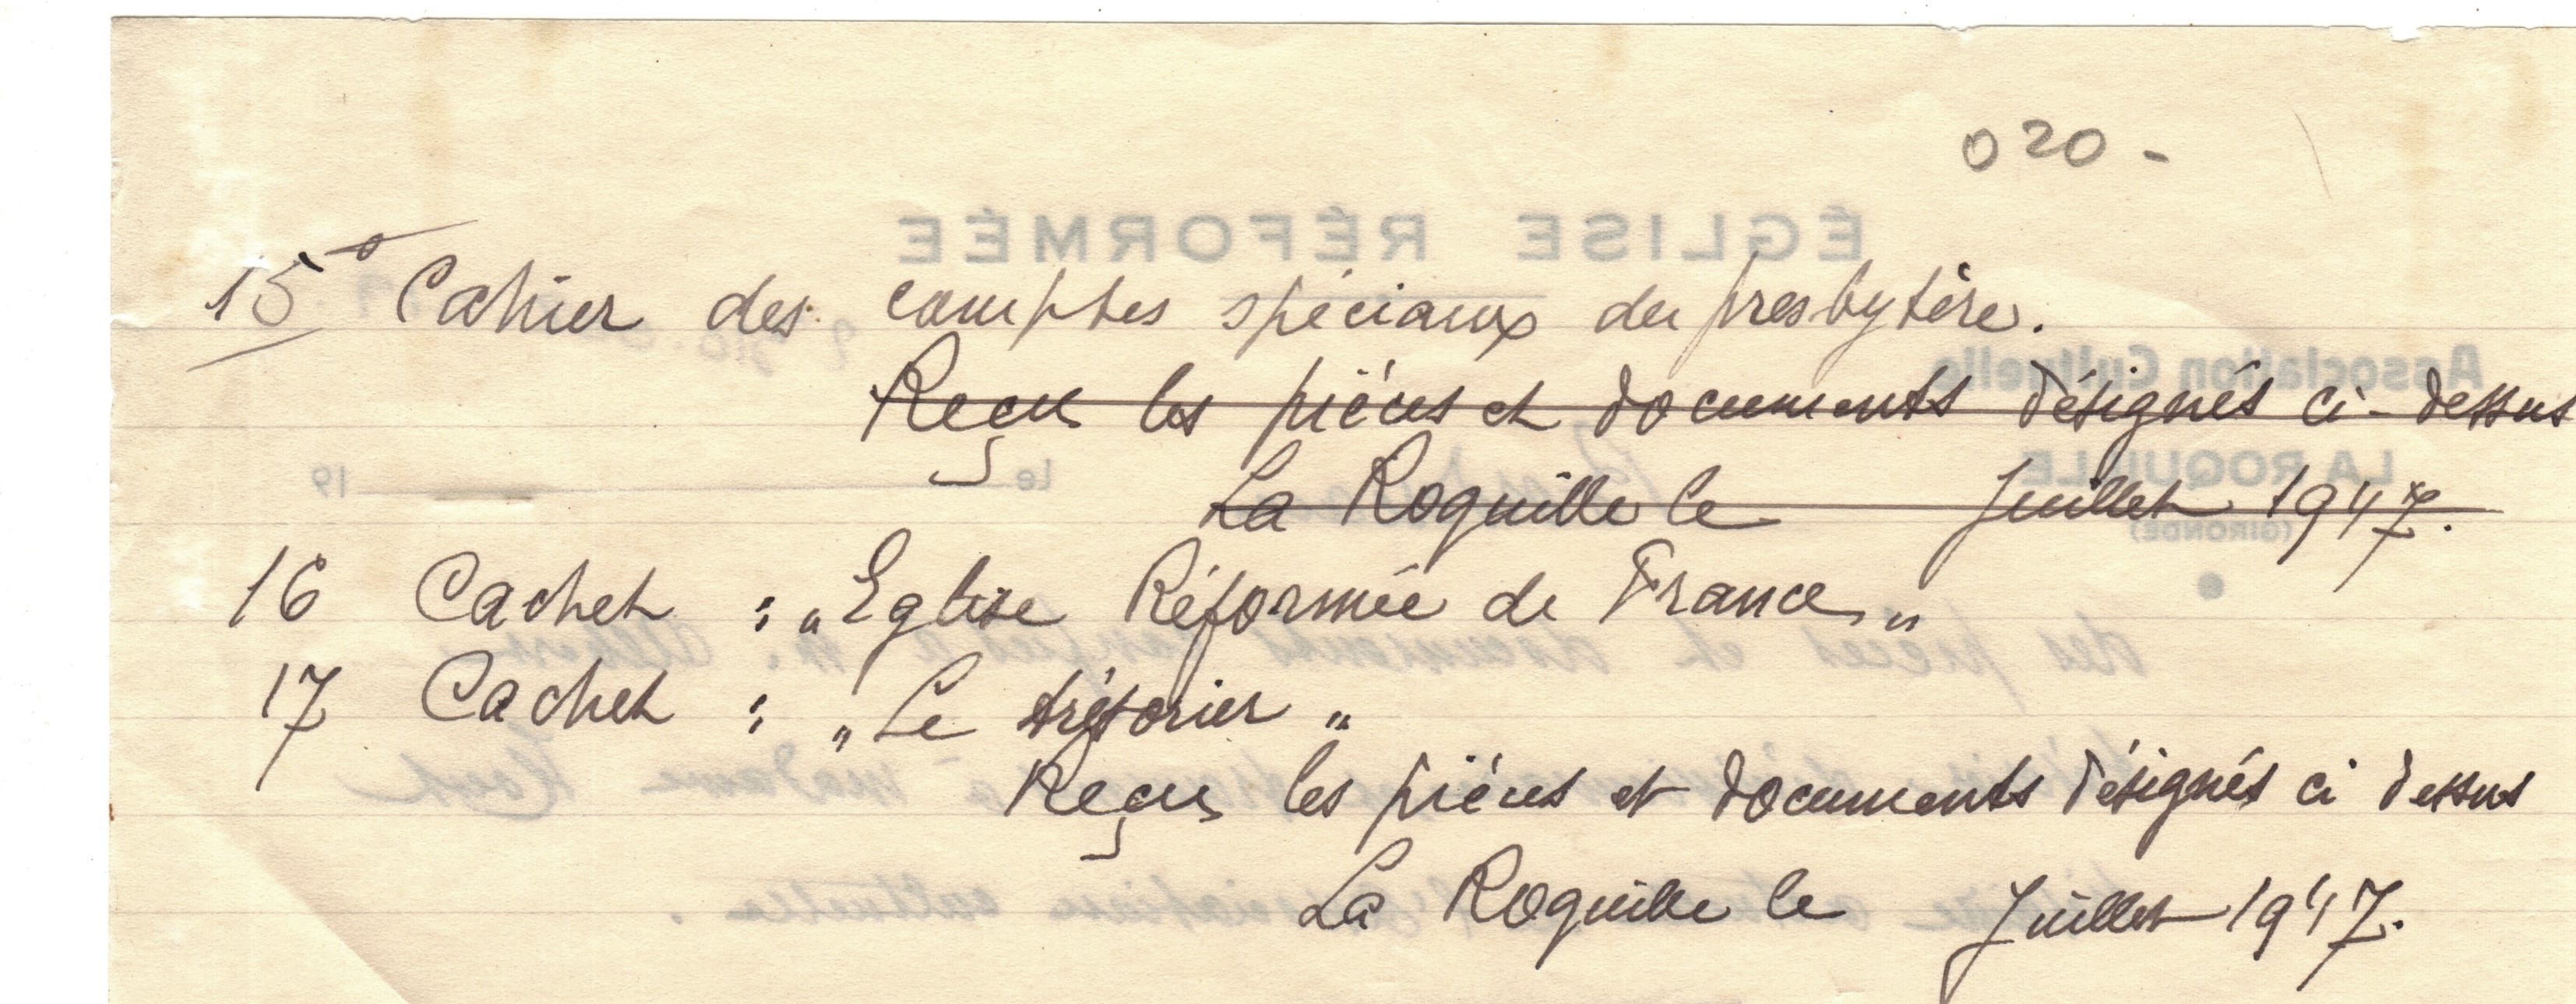 020 -
15° Cahier des comptes spéciaux du presbytère.
Reçu les pièces et documents désignés ci-dessus
La Roquille le Juillet 1947.
16 Cachet : „Eglise Réformée de France„
17 Cachet : „Le trésorier„
Reçu les pièces et documents désignés ci dessus
La Roquille le Juillet 1947.
ÉGLISE RÉFORMÉE
Association Cultuelle
LA ROQUILLE
(GIRONDE)
le 19
des pièces et documents
à madame
cultuelle.